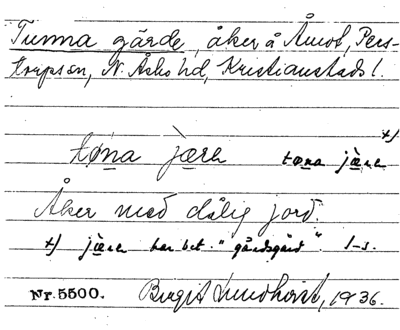 Tunna gärde, åker å Åmot, Pers-
torps sn, N. Åsbo hd, Kristianstads l.
x)
tøna jære tøna jære
Åker med dålig jord.
x) jære har bet. "gärdsgård". l-s.
Nr. 5500. Birgit Lundqvist, 1936.